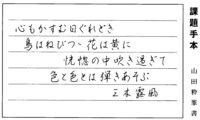 課題手本
山田幹筆書
心もかすむ日ぐれどき
鳥はねびつゝ花は黄に
恍惚の中吹き過ぎて
色と色とは弾きあそぶ
三木露風